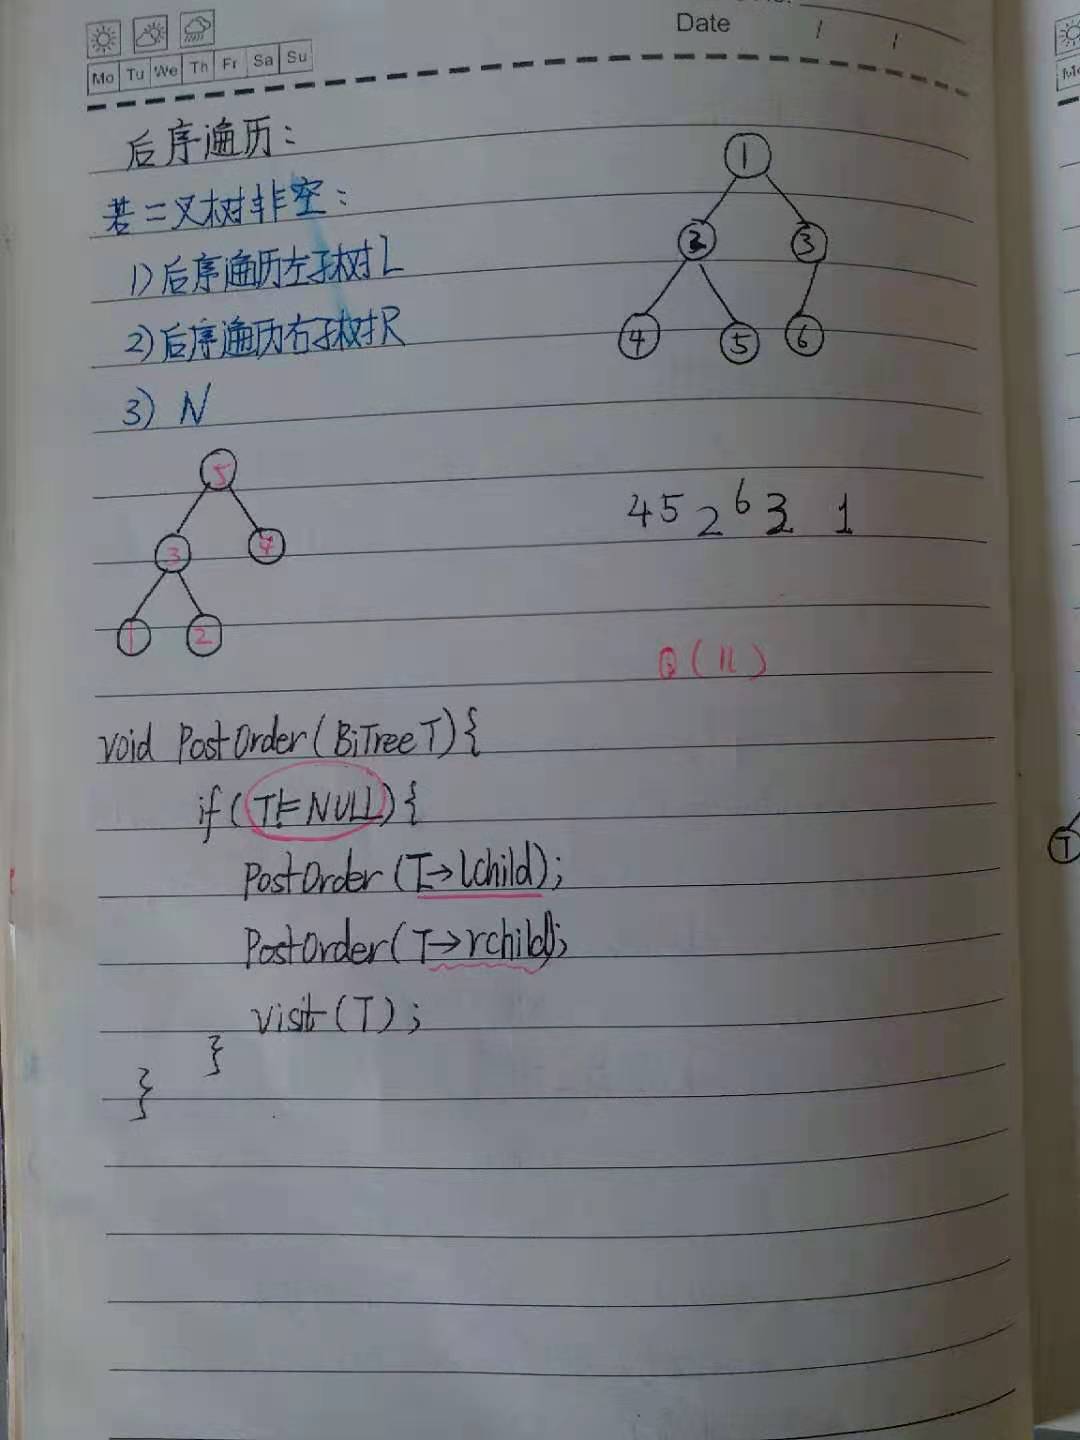 Date
Mo Tu We Th Fr Sa Su
后序遍历:
若二叉树非空:
1) 后序遍历左子树L
2) 后序遍历右子树R
3) N
1
2 3
4 5 6
5
3 4
1 2
4 5 2 6 3 1
O(n)
void PostOrder(BiTree T){
if(T!=NULL){
PostOrder(T→lchild);
PostOrder(T→rchild);
visit(T);
}
}